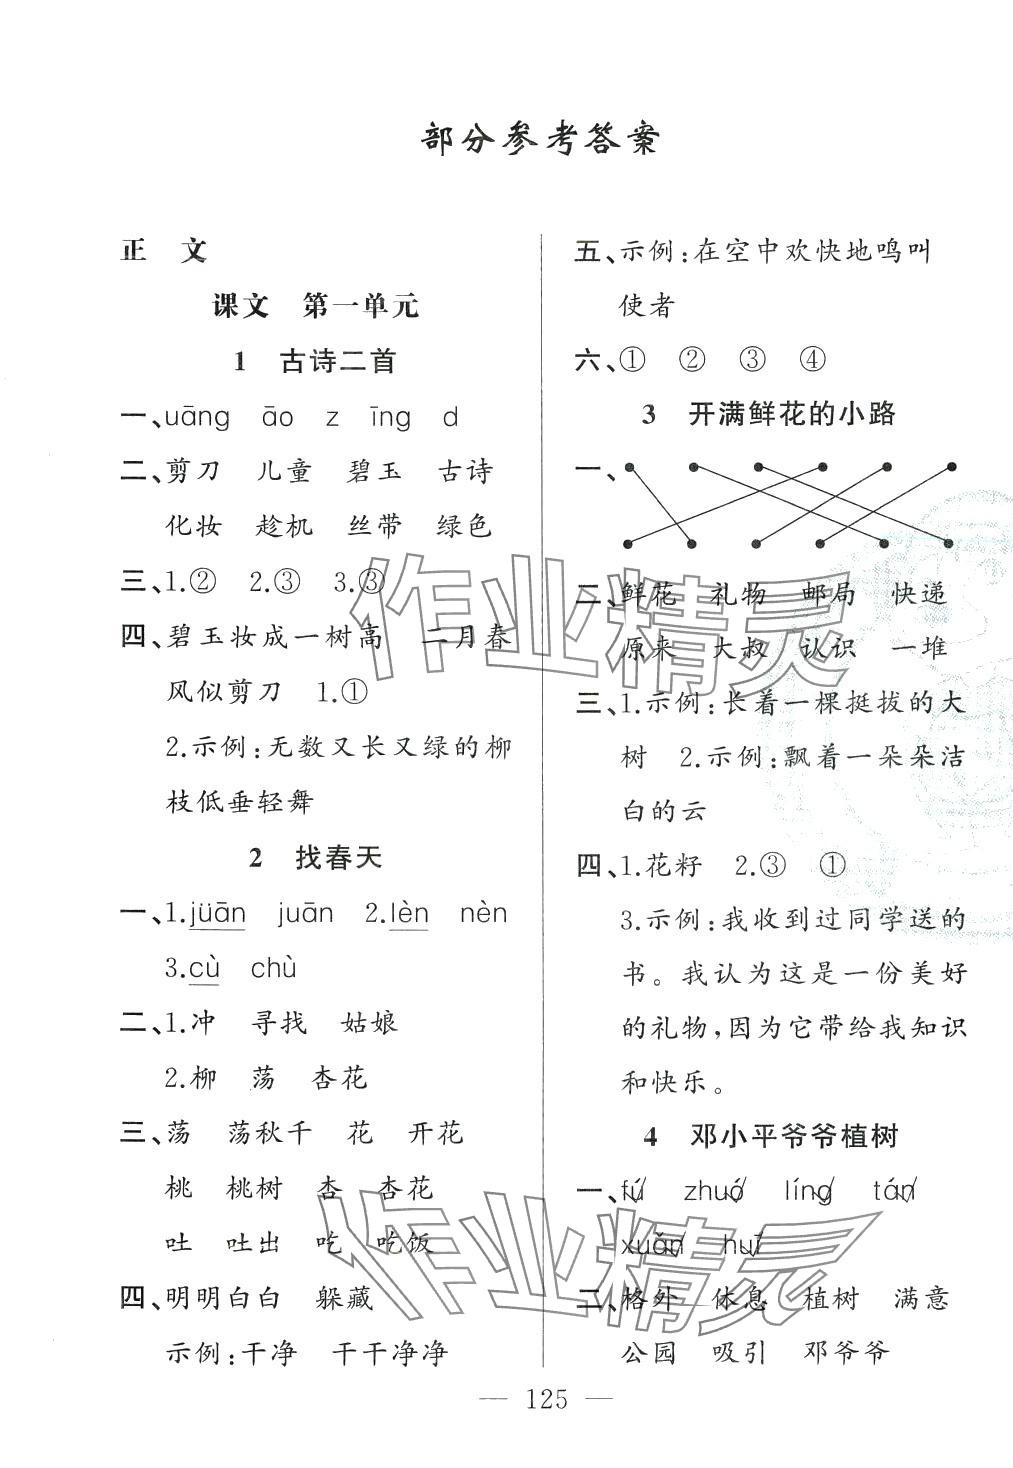 部分参考答案
正 文
课文 第一单元
1 古诗二首
一、uāng āo z īng d
二、剪刀 儿童 碧玉 古诗
化妆 趁机 丝带 绿色
三、1.② 2.③ 3.③
四、碧玉妆成一树高 二月春
风似剪刀 1.①
2.示例:无数又长又绿的柳
枝低垂轻舞
2 找春天
一、1.jüān juān 2.lèn nèn
3.cù chù
二、1.冲 寻找 姑娘
2.柳 荡 杏花
三、荡 荡秋千 花 开花
桃 桃树 杏 杏花
吐 吐出 吃 吃饭
四、明明白白 躲藏
示例:干净 干干净净
五、示例:在空中欢快地鸣叫
使者
六、① ② ③ ④
3 开满鲜花的小路
一、
二、鲜花 礼物 邮局 快递
原来 大叔 认识 一堆
三、1.示例:长着一棵挺拔的大
树 2.示例:飘着一朵朵洁
白的云
四、1.花籽 2.③ ①
3.示例:我收到过同学送的
书。我认为这是一份美好
的礼物,因为它带给我知识
和快乐。
4 邓小平爷爷植树
一、fú zhuó líng tán
xuǎn huī
二、格外 休息 植树 满意
公园 吸引 邓爷爷
— 125 —
作业精灵
作业精灵